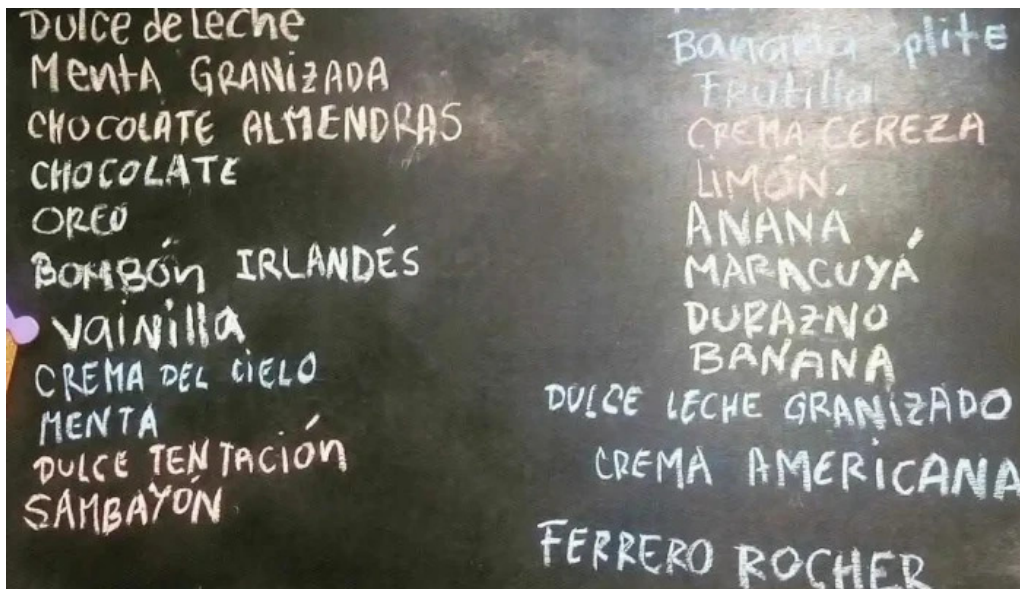 Dulce de Leche
Menta GRANIZADA
CHOCOLATE ALMENDRAS
CHOCOLATE
OREO
BOMBÓn IRLANDÉS
Vainilla
CREMA DEL CIELO
MENTA
DULCE TENTACIÓn
SAMBAYÓN
Banana Splite
Frutilla
CREMA CEREZA
LIMÓN
ANANÁ
MARACUYÁ
DURAZNO
BANANA
DULCE LECHE GRANIZADO
CREMA AMERICANA
FERRERO ROCHER